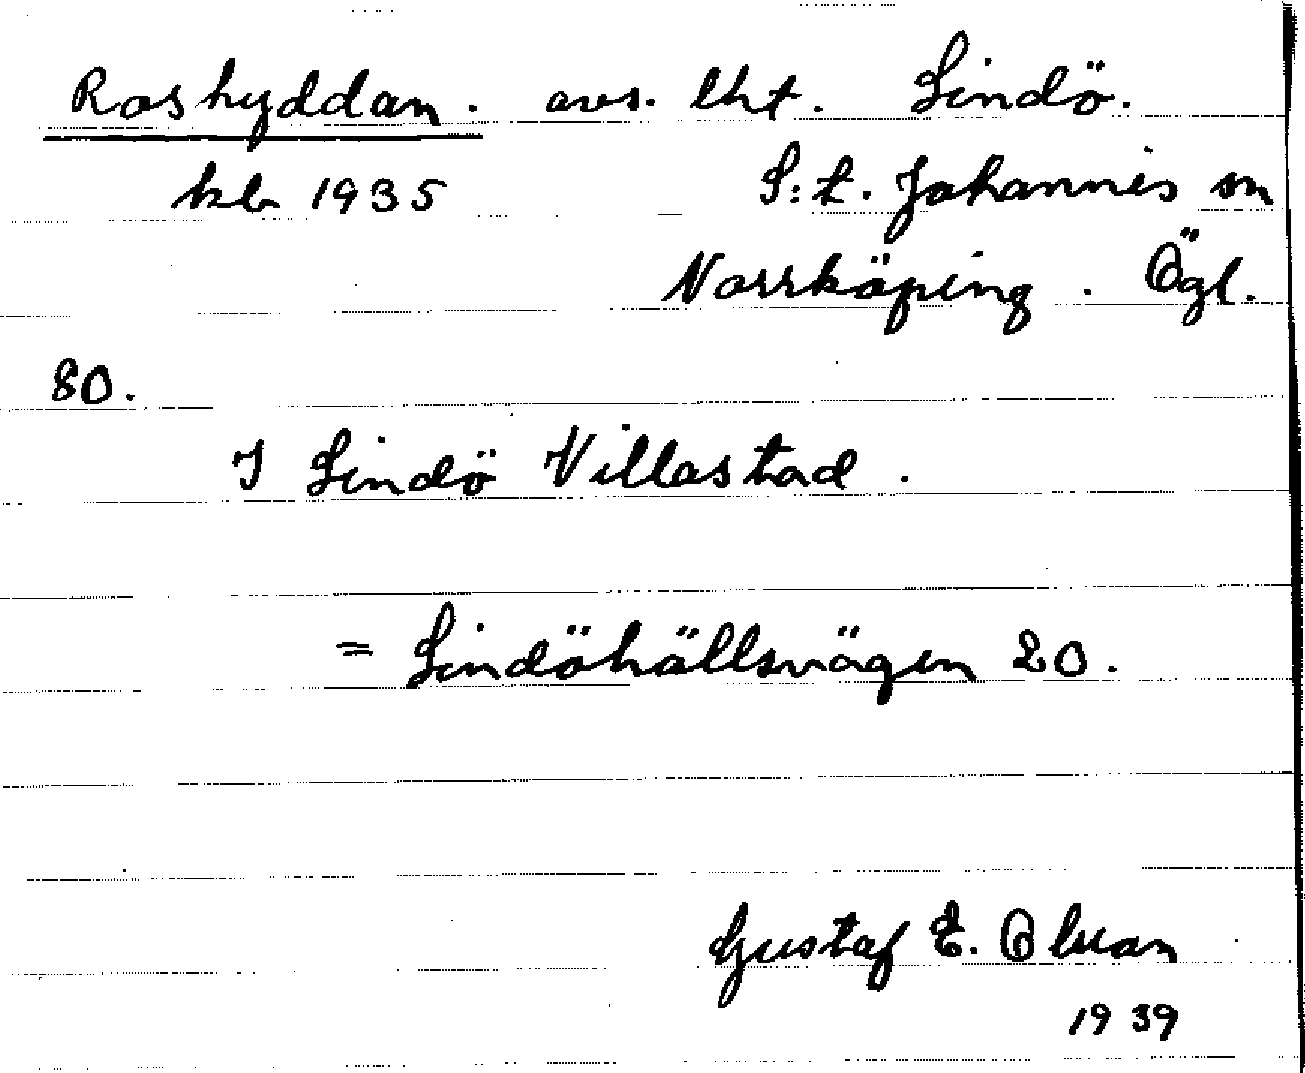 Roshyddan. avs. lht. Lindö.
kb 1935 S:t. Johannis sn
Norrköping. Ögl.
80.
I Lindö Villastad.
= Lindöhällsvägen 20.
Gustaf E. Olsson
1939